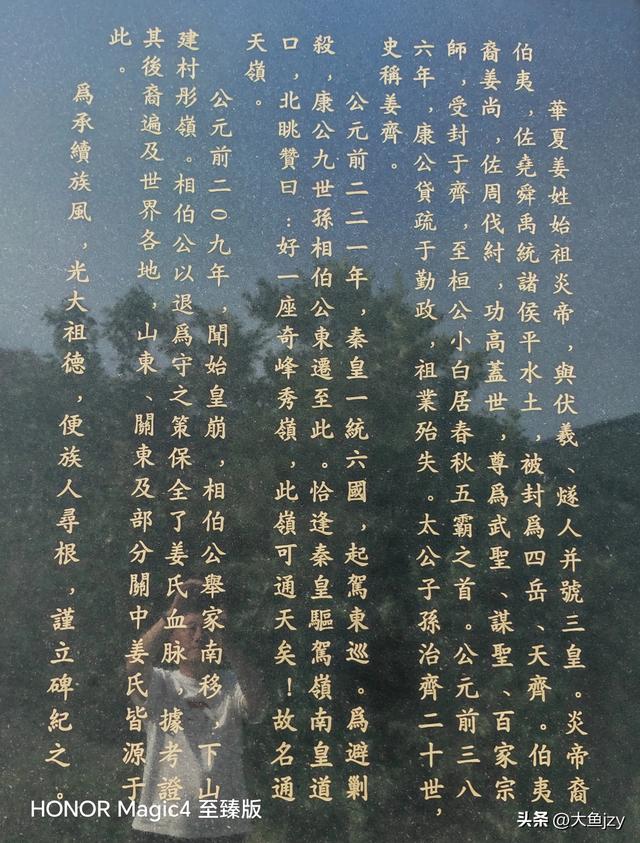 華夏姜姓始祖炎帝，與伏羲、燧人并號三皇。炎帝裔
伯夷，佐堯舜禹統諸侯平水土，被封爲四岳、天齊。伯夷
裔姜尚，佐周伐紂，功高蓋世，尊爲武聖、謀聖、百家宗
師，受封于齊，至桓公小白居春秋五霸之首。公元前三八
六年，康公貸疏于勤政，祖業殆失。太公子孫治齊二十世，
史稱姜齊。
公元前二二一年，秦皇一統六國，起駕東巡。爲避剿
殺，康公九世孫相伯公東遷至此。恰逢秦皇驅駕嶺南皇道
口，北眺贊曰：好一座奇峰秀嶺，此嶺可通天矣！故名通
天嶺。
公元前二〇九年，聞始皇崩，相伯公舉家南移，下山
建村彤嶺。相伯公以退爲守之策保全了姜氏血脉，據考證
其後裔遍及世界各地，山東、關東及部分關中姜氏皆源于
此。
爲承續族風，光大祖德，便族人尋根，謹立碑紀之。
HONOR Magic4 至臻版
头条 @大鱼jzy